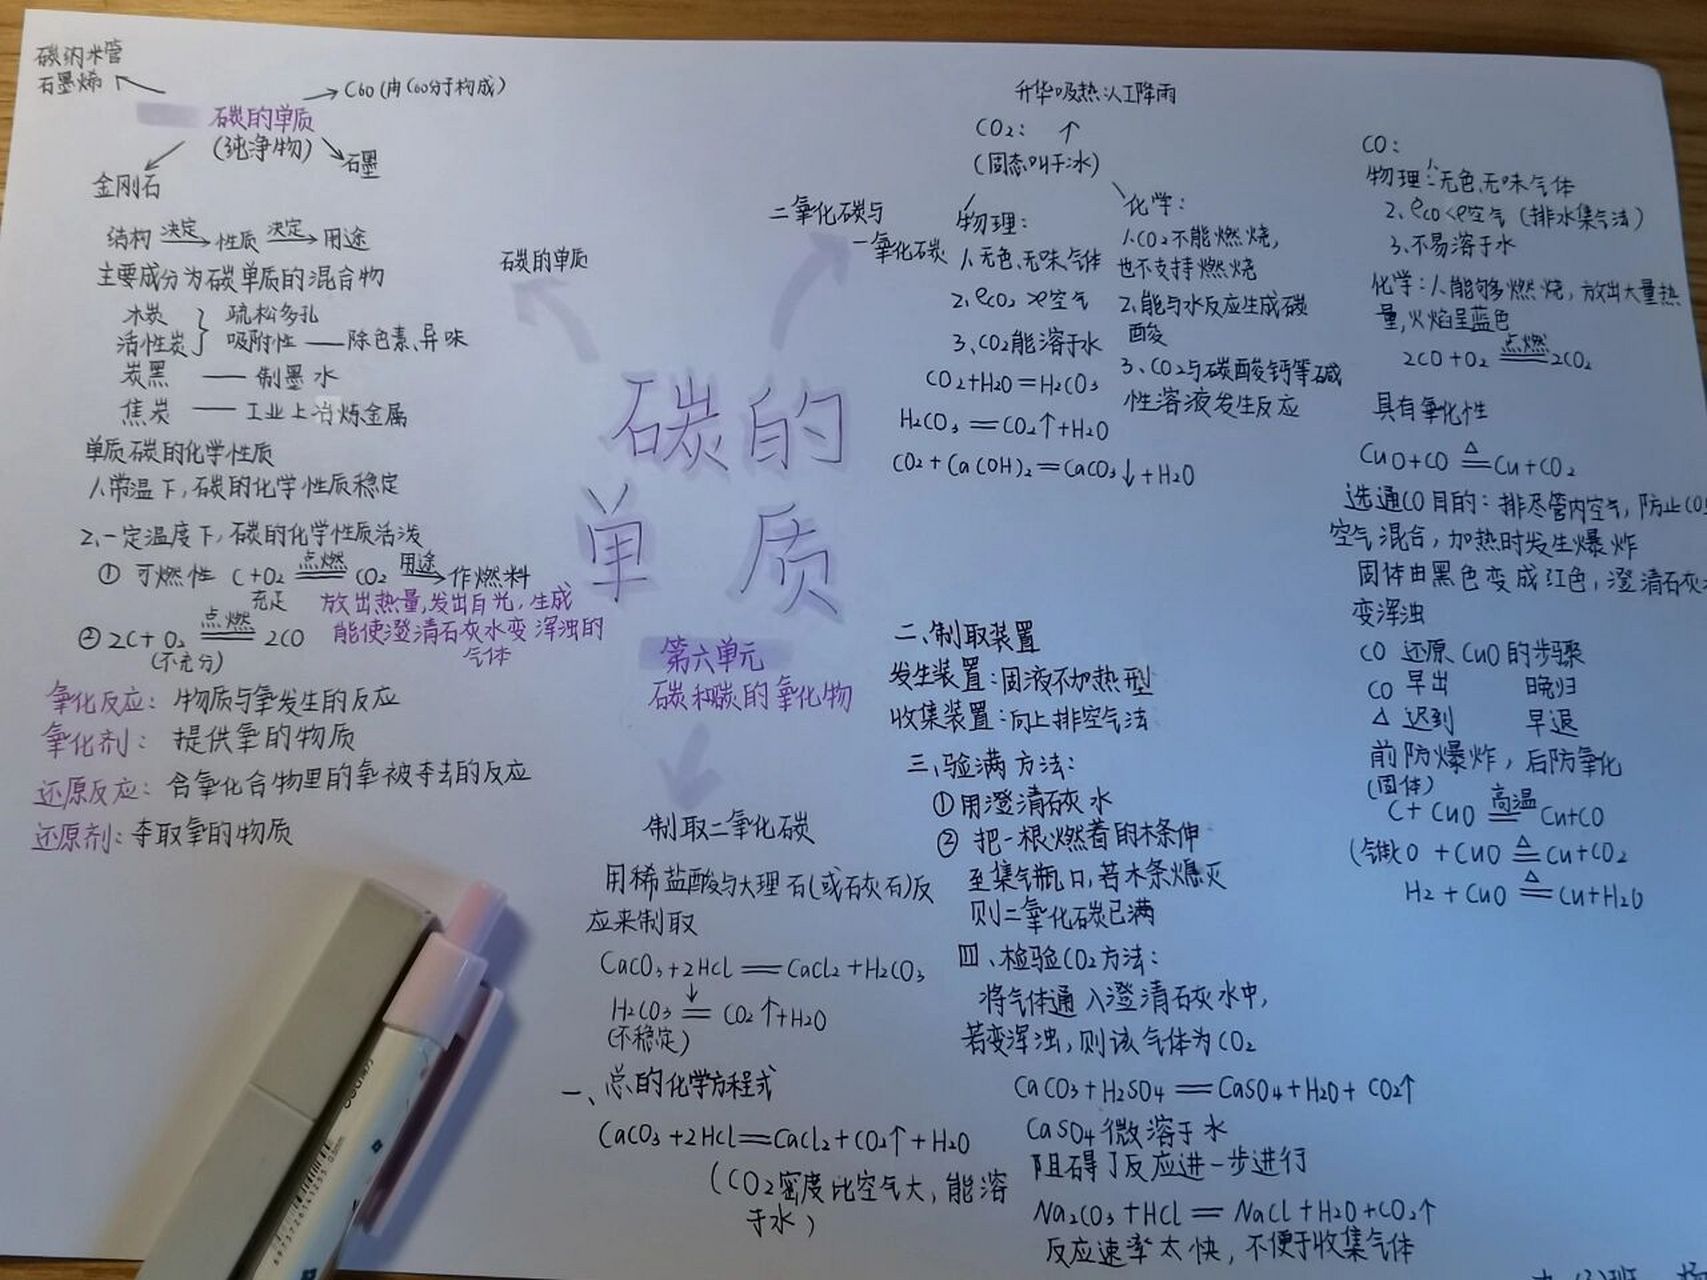 碳纳米管
石墨烯
C60(由C60分子构成)
碳的单质
(纯净物)
石墨
金刚石
结构 决定 性质 决定 用途
主要成分为碳单质的混合物
木炭 疏松多孔
活性炭 吸附性——除色素、异味
炭黑——制墨水
焦炭——工业上冶炼金属
单质碳的化学性质
1、常温下,碳的化学性质稳定
2、一定温度下,碳的化学性质活泼
① 可燃性 C+O2 点燃 CO2 用途 作燃料
充足
放出热量,发出白光,生成
能使澄清石灰水变浑浊的
气体
② 2C+O2 点燃 2CO
(不充分)
氧化反应: 物质与氧发生的反应
氧化剂: 提供氧的物质
还原反应: 含氧化合物里的氧被夺去的反应
还原剂: 夺取氧的物质
碳的单质
二氧化碳与
一氧化碳
碳的
单质
第六单元
碳和碳的氧化物
制取二氧化碳
用稀盐酸与大理石(或石灰石)反
应来制取
CaCO3+2HCl=CaCl2+H2CO3
H2CO3=CO2↑+H2O
(不稳定)
一、总的化学方程式
CaCO3+2HCl=CaCl2+CO2↑+H2O
(CO2密度比空气大,能溶
于水)
升华吸热,人工降雨
CO2:
(固态叫干冰)
物理:
1、无色、无味气体
2、ρCO2>ρ空气
3、CO2能溶于水
CO2+H2O=H2CO3
H2CO3=CO2↑+H2O
CO2+Ca(OH)2=CaCO3↓+H2O
化学:
1、CO2不能燃烧,
也不支持燃烧
2、能与水反应生成碳
酸
3、CO2与碳酸钙等碱
性溶液发生反应
二、制取装置
发生装置:固液不加热型
收集装置:向上排空气法
三、验满方法:
①用澄清石灰水
② 把一根燃着的木条伸
至集气瓶口,若木条熄灭
则二氧化碳已满
四、检验CO2方法:
将气体通入澄清石灰水中,
若变浑浊,则该气体为CO2
CaCO3+H2SO4=CaSO4+H2O+CO2↑
CaSO4微溶于水
阻碍了反应进一步进行
Na2CO3+HCl=NaCl+H2O+CO2↑
反应速率太快,不便于收集气体
CO:
物理:1、无色、无味气体
2、ρCO<ρ空气(排水集气法)
3、不易溶于水
化学:1、能够燃烧,放出大量热
量,火焰呈蓝色
2CO+O2 点燃 2CO2
具有氧化性
CuO+CO △ Cu+CO2
先通CO目的:排尽管内空气,防止CO
空气混合,加热时发生爆炸
固体由黑色变成红色,澄清石灰
变浑浊
CO还原CuO的步骤
CO 早出 晚归
△ 迟到 早退
前防爆炸,后防氧化
(固体)
C+CuO 高温 Cu+CO
(气体)CO+CuO △ Cu+CO2
H2+CuO △ Cu+H2O